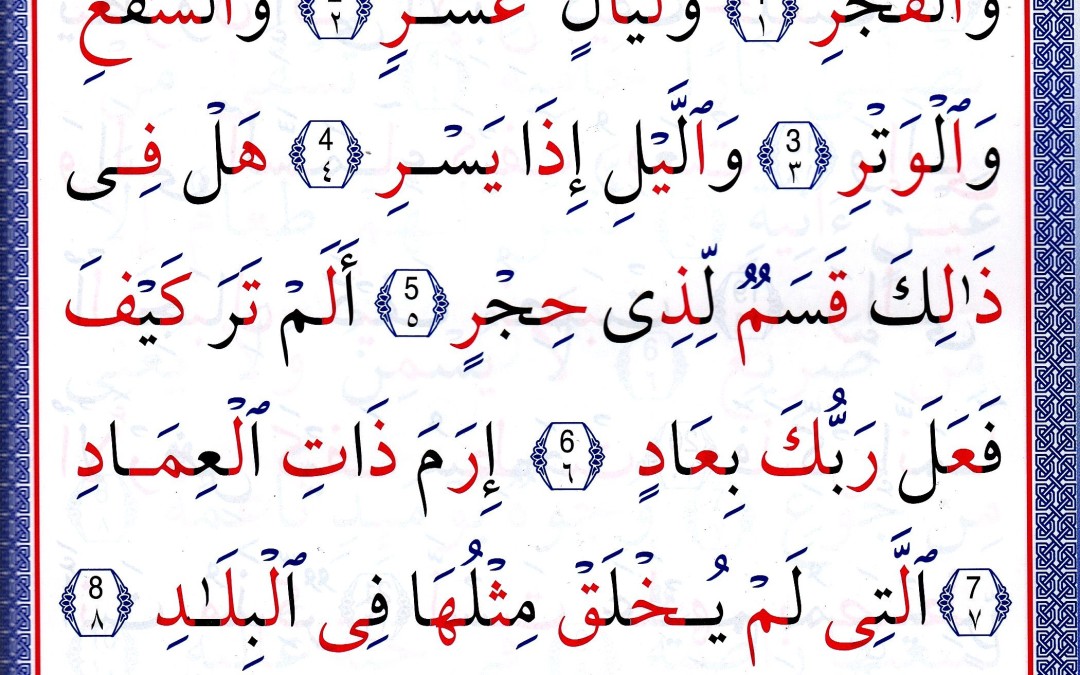 وَٱلْفَجْرِ 1 ١ وَلَيَالٍ عَشْرٍ 2 ٢ وَٱلشَّفْعِ
وَٱلْوَتْرِ 3 ٣ وَٱلَّيْلِ إِذَا يَسْرِ 4 ٤ هَلْ فِى
ذَٰلِكَ قَسَمٌ لِّذِى حِجْرٍ 5 ٥ أَلَمْ تَرَ كَيْفَ
فَعَلَ رَبُّكَ بِعَادٍ 6 ٦ إِرَمَ ذَاتِ ٱلْعِمَادِ
7 ٧ ٱلَّتِى لَمْ يُخْلَقْ مِثْلُهَا فِى ٱلْبِلَٰدِ 8 ٨